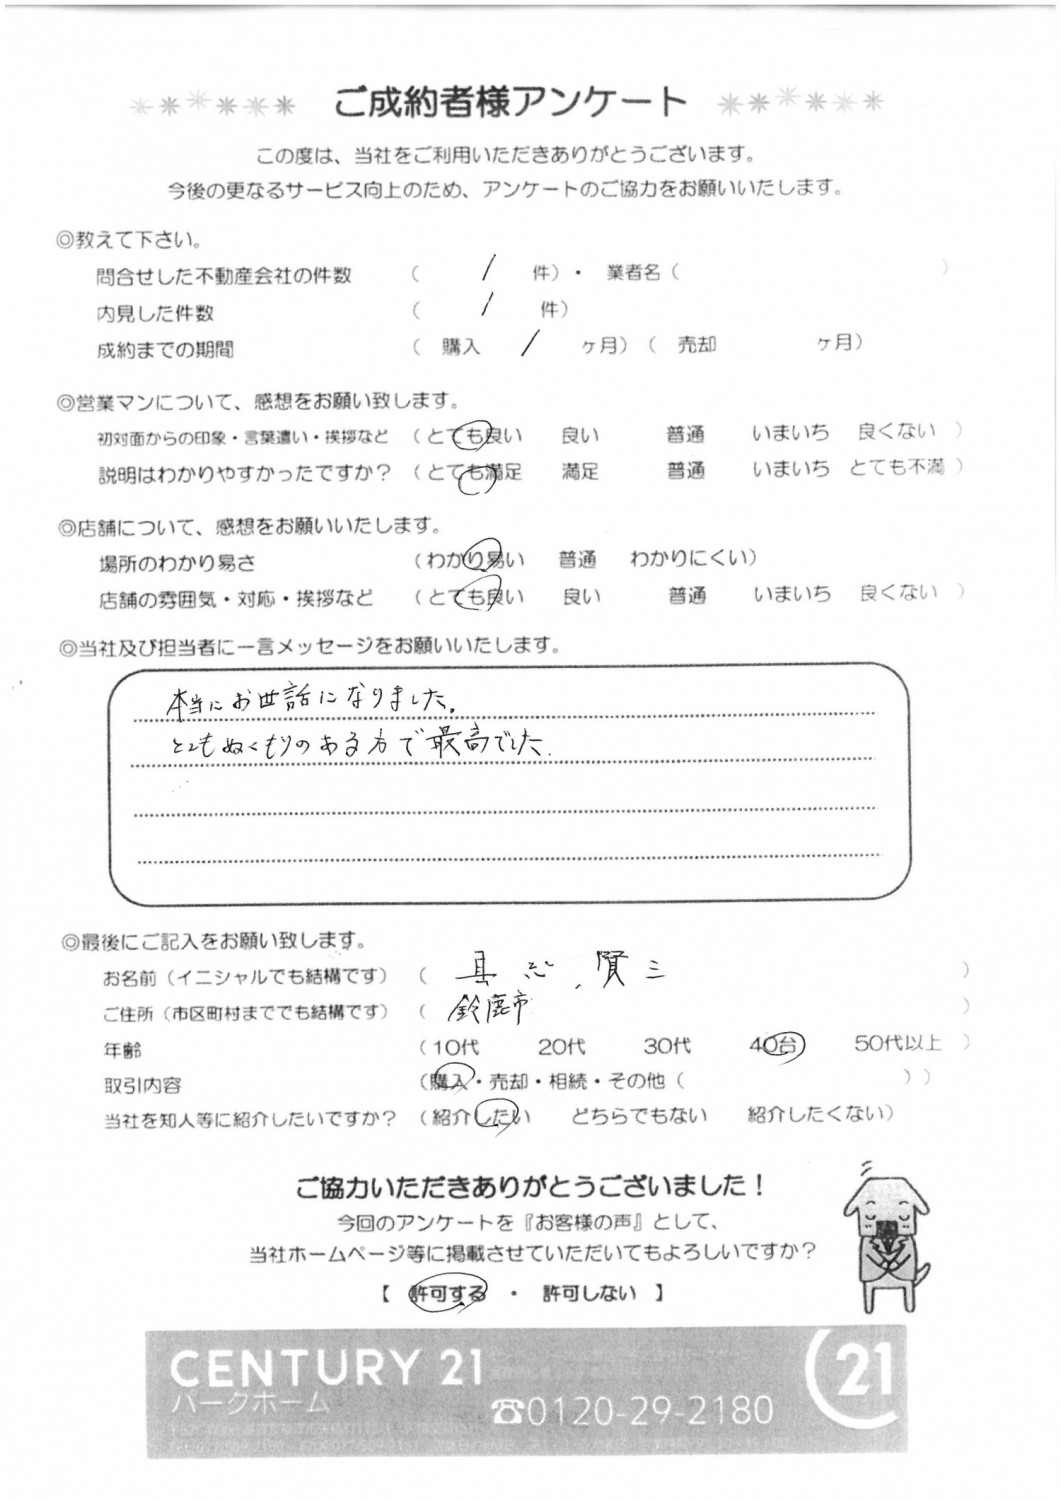 ご成約者様アンケート
この度は、当社をご利用いただきありがとうございます。
今後の更なるサービス向上のため、アンケートのご協力をお願いいたします。
◎教えて下さい。
問合せした不動産会社の件数 ( 1 件)・ 業者名 ( )
内見した件数 ( 1 件)
成約までの期間 ( 購入 1 ヶ月) ( 売却 ヶ月)
◎営業マンについて、感想をお願い致します。
初対面からの印象・言葉遣い・挨拶など (とても良い 良い 普通 いまいち 良くない )
説明はわかりやすかったですか? (とても満足 満足 普通 いまいち とても不満 )
◎店舗について、感想をお願いいたします。
場所のわかり易さ (わかり易い 普通 わかりにくい)
店舗の雰囲気・対応・挨拶など (とても良い 良い 普通 いまいち 良くない )
◎当社及び担当者に一言メッセージをお願いいたします。
本当にお世話になりました。
とてもぬくもりのある方で最高でした.
◎最後にご記入をお願い致します。
お名前(イニシャルでも結構です) ( 賢三 )
ご住所(市区町村まででも結構です) ( 鈴鹿市 )
年齢 (10代 20代 30代 40台 50代以上 )
取引内容 (購入・売却・相続・その他 ( ) )
当社を知人等に紹介したいですか? (紹介したい どちらでもない 紹介したくない)
ご協力いただきありがとうございました!
今回のアンケートを『お客様の声』として、
当社ホームページ等に掲載させていただいてもよろしいですか?
【 許可する ・ 許可しない 】
CENTURY 21
パークホーム
☎0120-29-2180
21